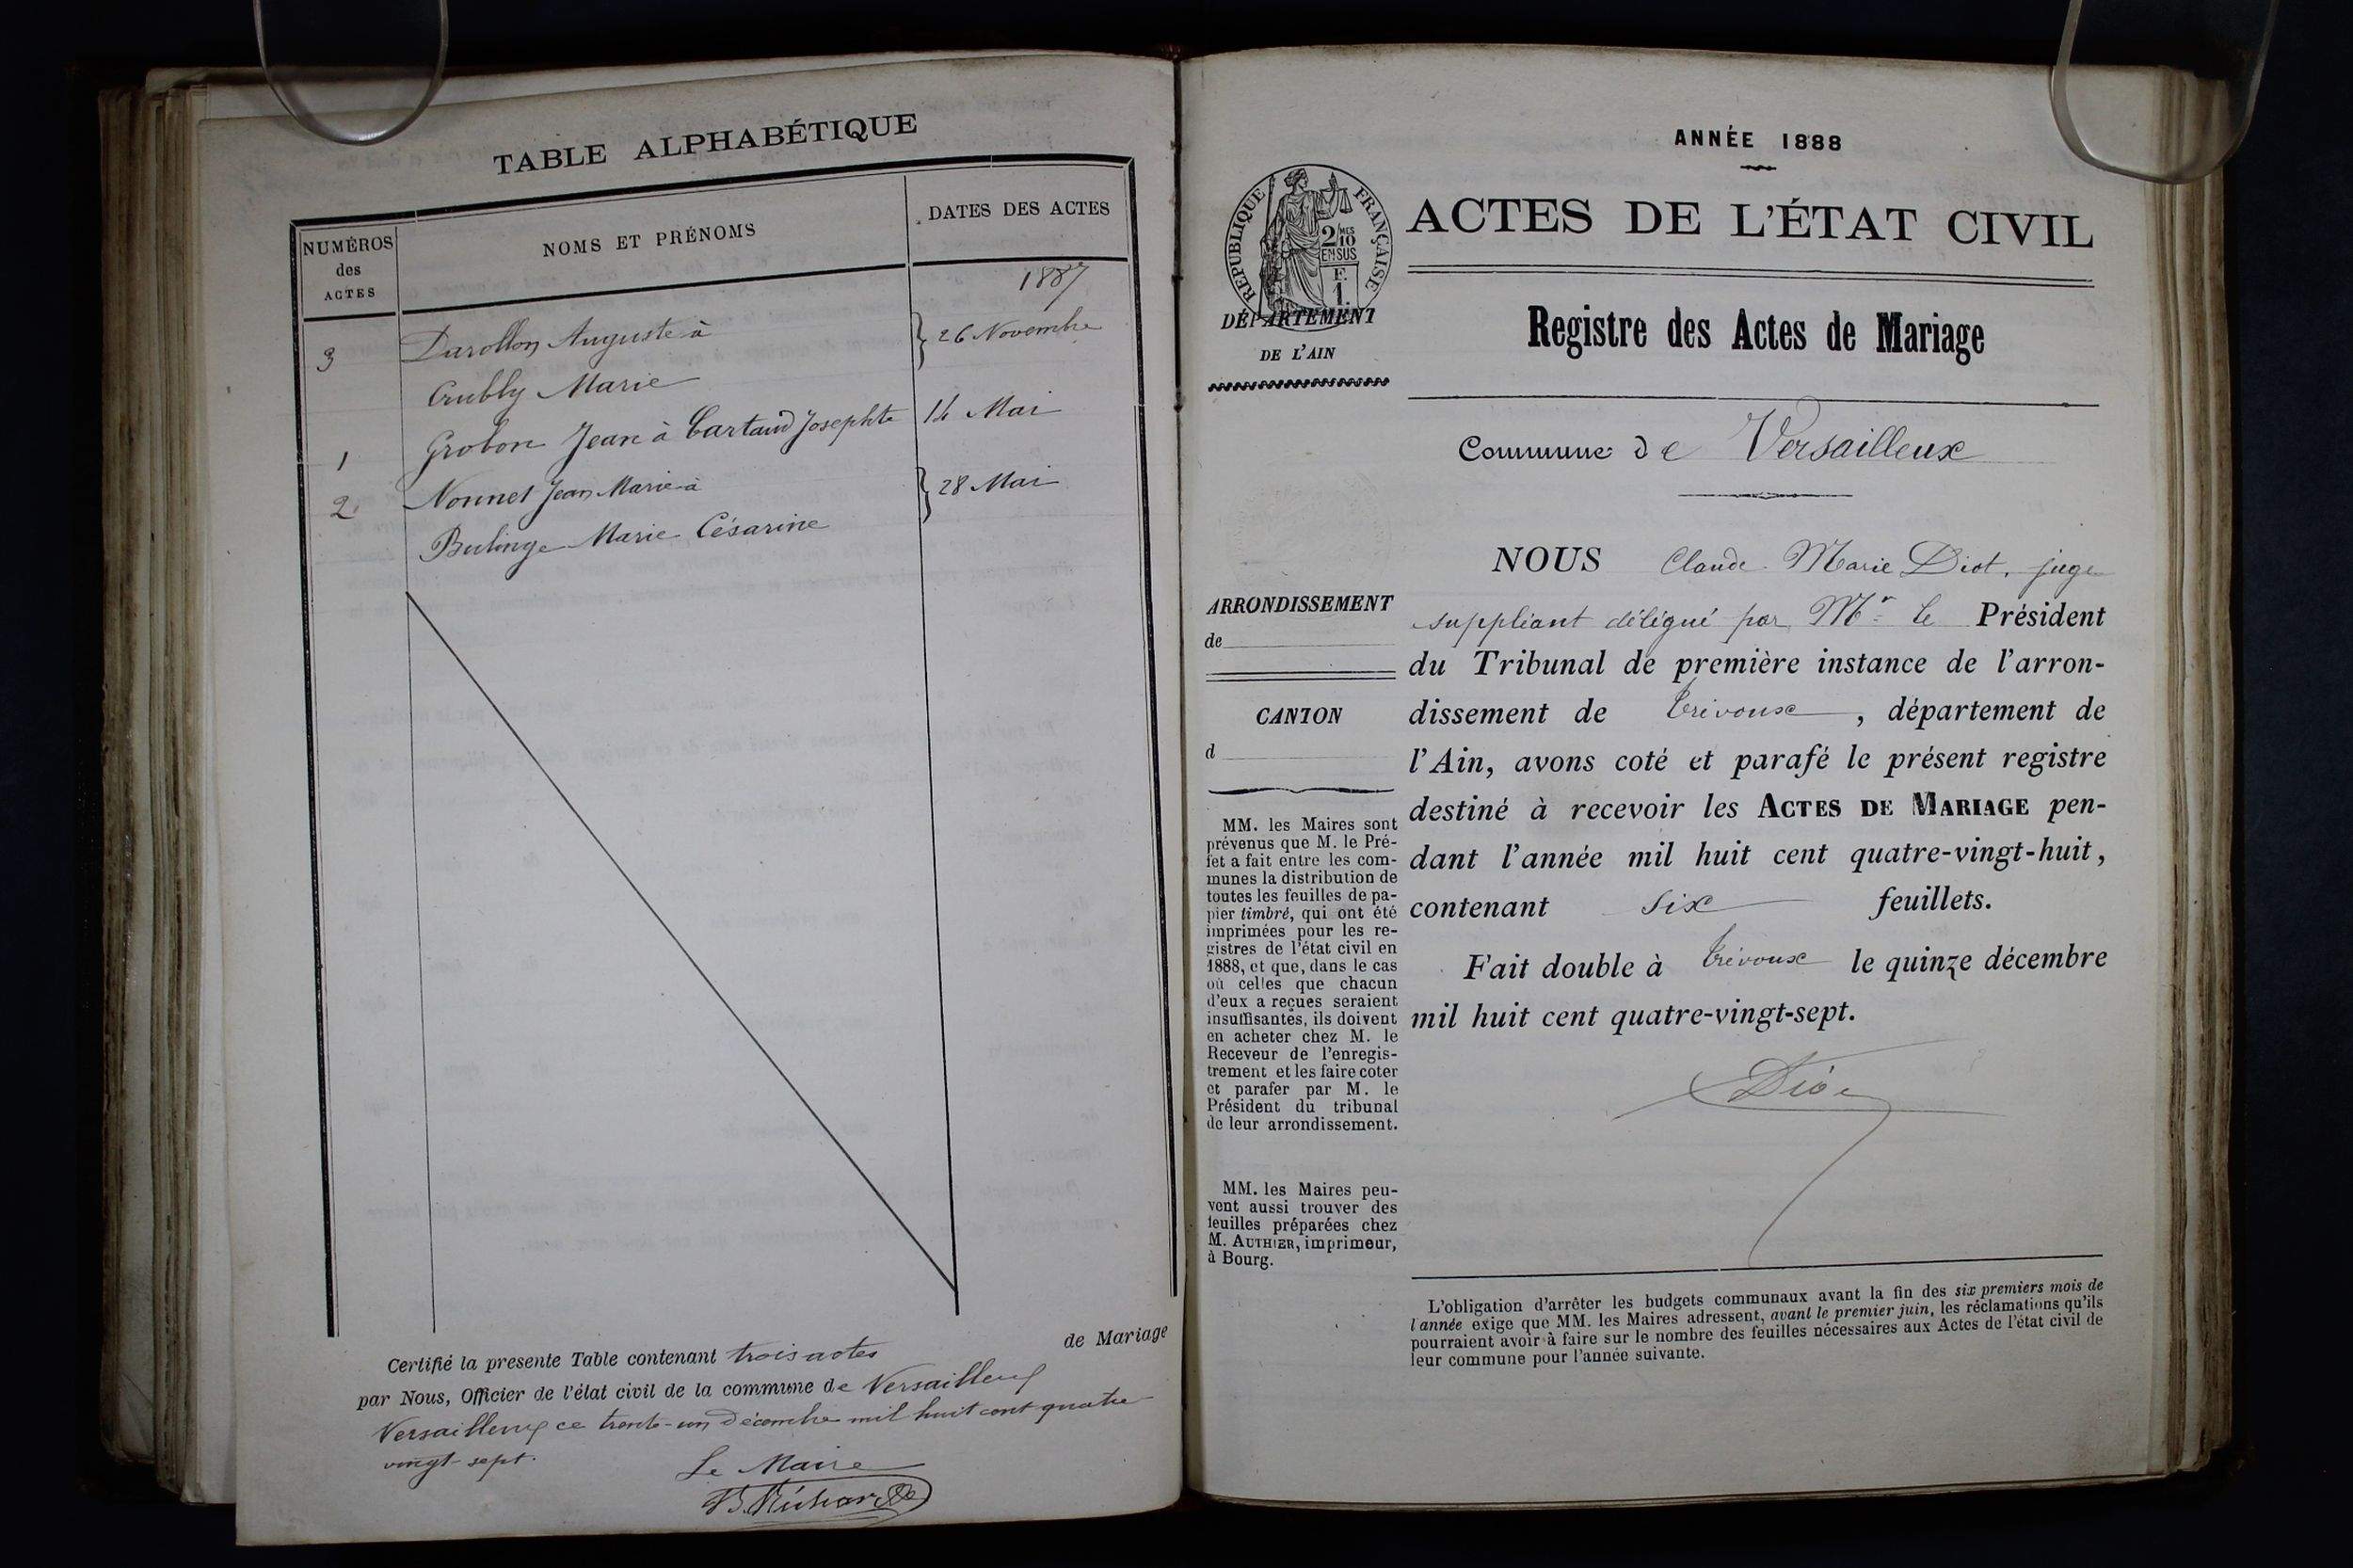 TABLE ALPHABÉTIQUE
NUMÉROS
des
ACTES
NOMS ET PRÉNOMS
DATES DES ACTES
1887
3 Darollon Auguste à 26 Novembre
Crubly Marie
1 Grobon Jean à Cartaud Josephte 14 Mai
2 Nonnet Jean Marie à 28 Mai
Bulinge Marie Césarine
Certifié la presente Table contenant trois actes de Mariage
par Nous, Officier de l'état civil de la commune de Versailleux
Versailleux ce trente-un décembre mil huit cent quatre
vingt-sept.
Le Maire
ANNÉE 1888
RÉPUBLIQUE FRANÇAISE
2/10 MES
EN SUS
F.
1.
DÉPARTEMENT
DE L'AIN
ACTES DE L'ÉTAT CIVIL
Registre des Actes de Mariage
Commune de Versailleux
ARRONDISSEMENT
de
CANTON
d
MM. les Maires sont
prévenus que M. le Pré-
fet a fait entre les com-
munes la distribution de
toutes les feuilles de pa-
pier timbré, qui ont été
imprimées pour les re-
gistres de l'état civil en
1888, et que, dans le cas
où celles que chacun
d'eux a reçues seraient
insuffisantes, ils doivent
en acheter chez M. le
Receveur de l'enregis-
trement et les faire coter
et parafer par M. le
Président du tribunal
de leur arrondissement.
MM. les Maires peu-
vent aussi trouver des
feuilles préparées chez
M. AUTHIER, imprimeur,
à Bourg.
NOUS Claude Marie Diot, juge
suppléant délégué par Mr le Président
du Tribunal de première instance de l'arron-
dissement de Trévoux, département de
l'Ain, avons coté et parafé le présent registre
destiné à recevoir les ACTES DE MARIAGE pen-
dant l'année mil huit cent quatre-vingt-huit,
contenant six feuillets.
Fait double à Trévoux le quinze décembre
mil huit cent quatre-vingt-sept.
Diot
L'obligation d'arrêter les budgets communaux avant la fin des six premiers mois de
l'année exige que MM. les Maires adressent, avant le premier juin, les réclamations qu'ils
pourraient avoir à faire sur le nombre des feuilles nécessaires aux Actes de l'état civil de
leur commune pour l'année suivante.